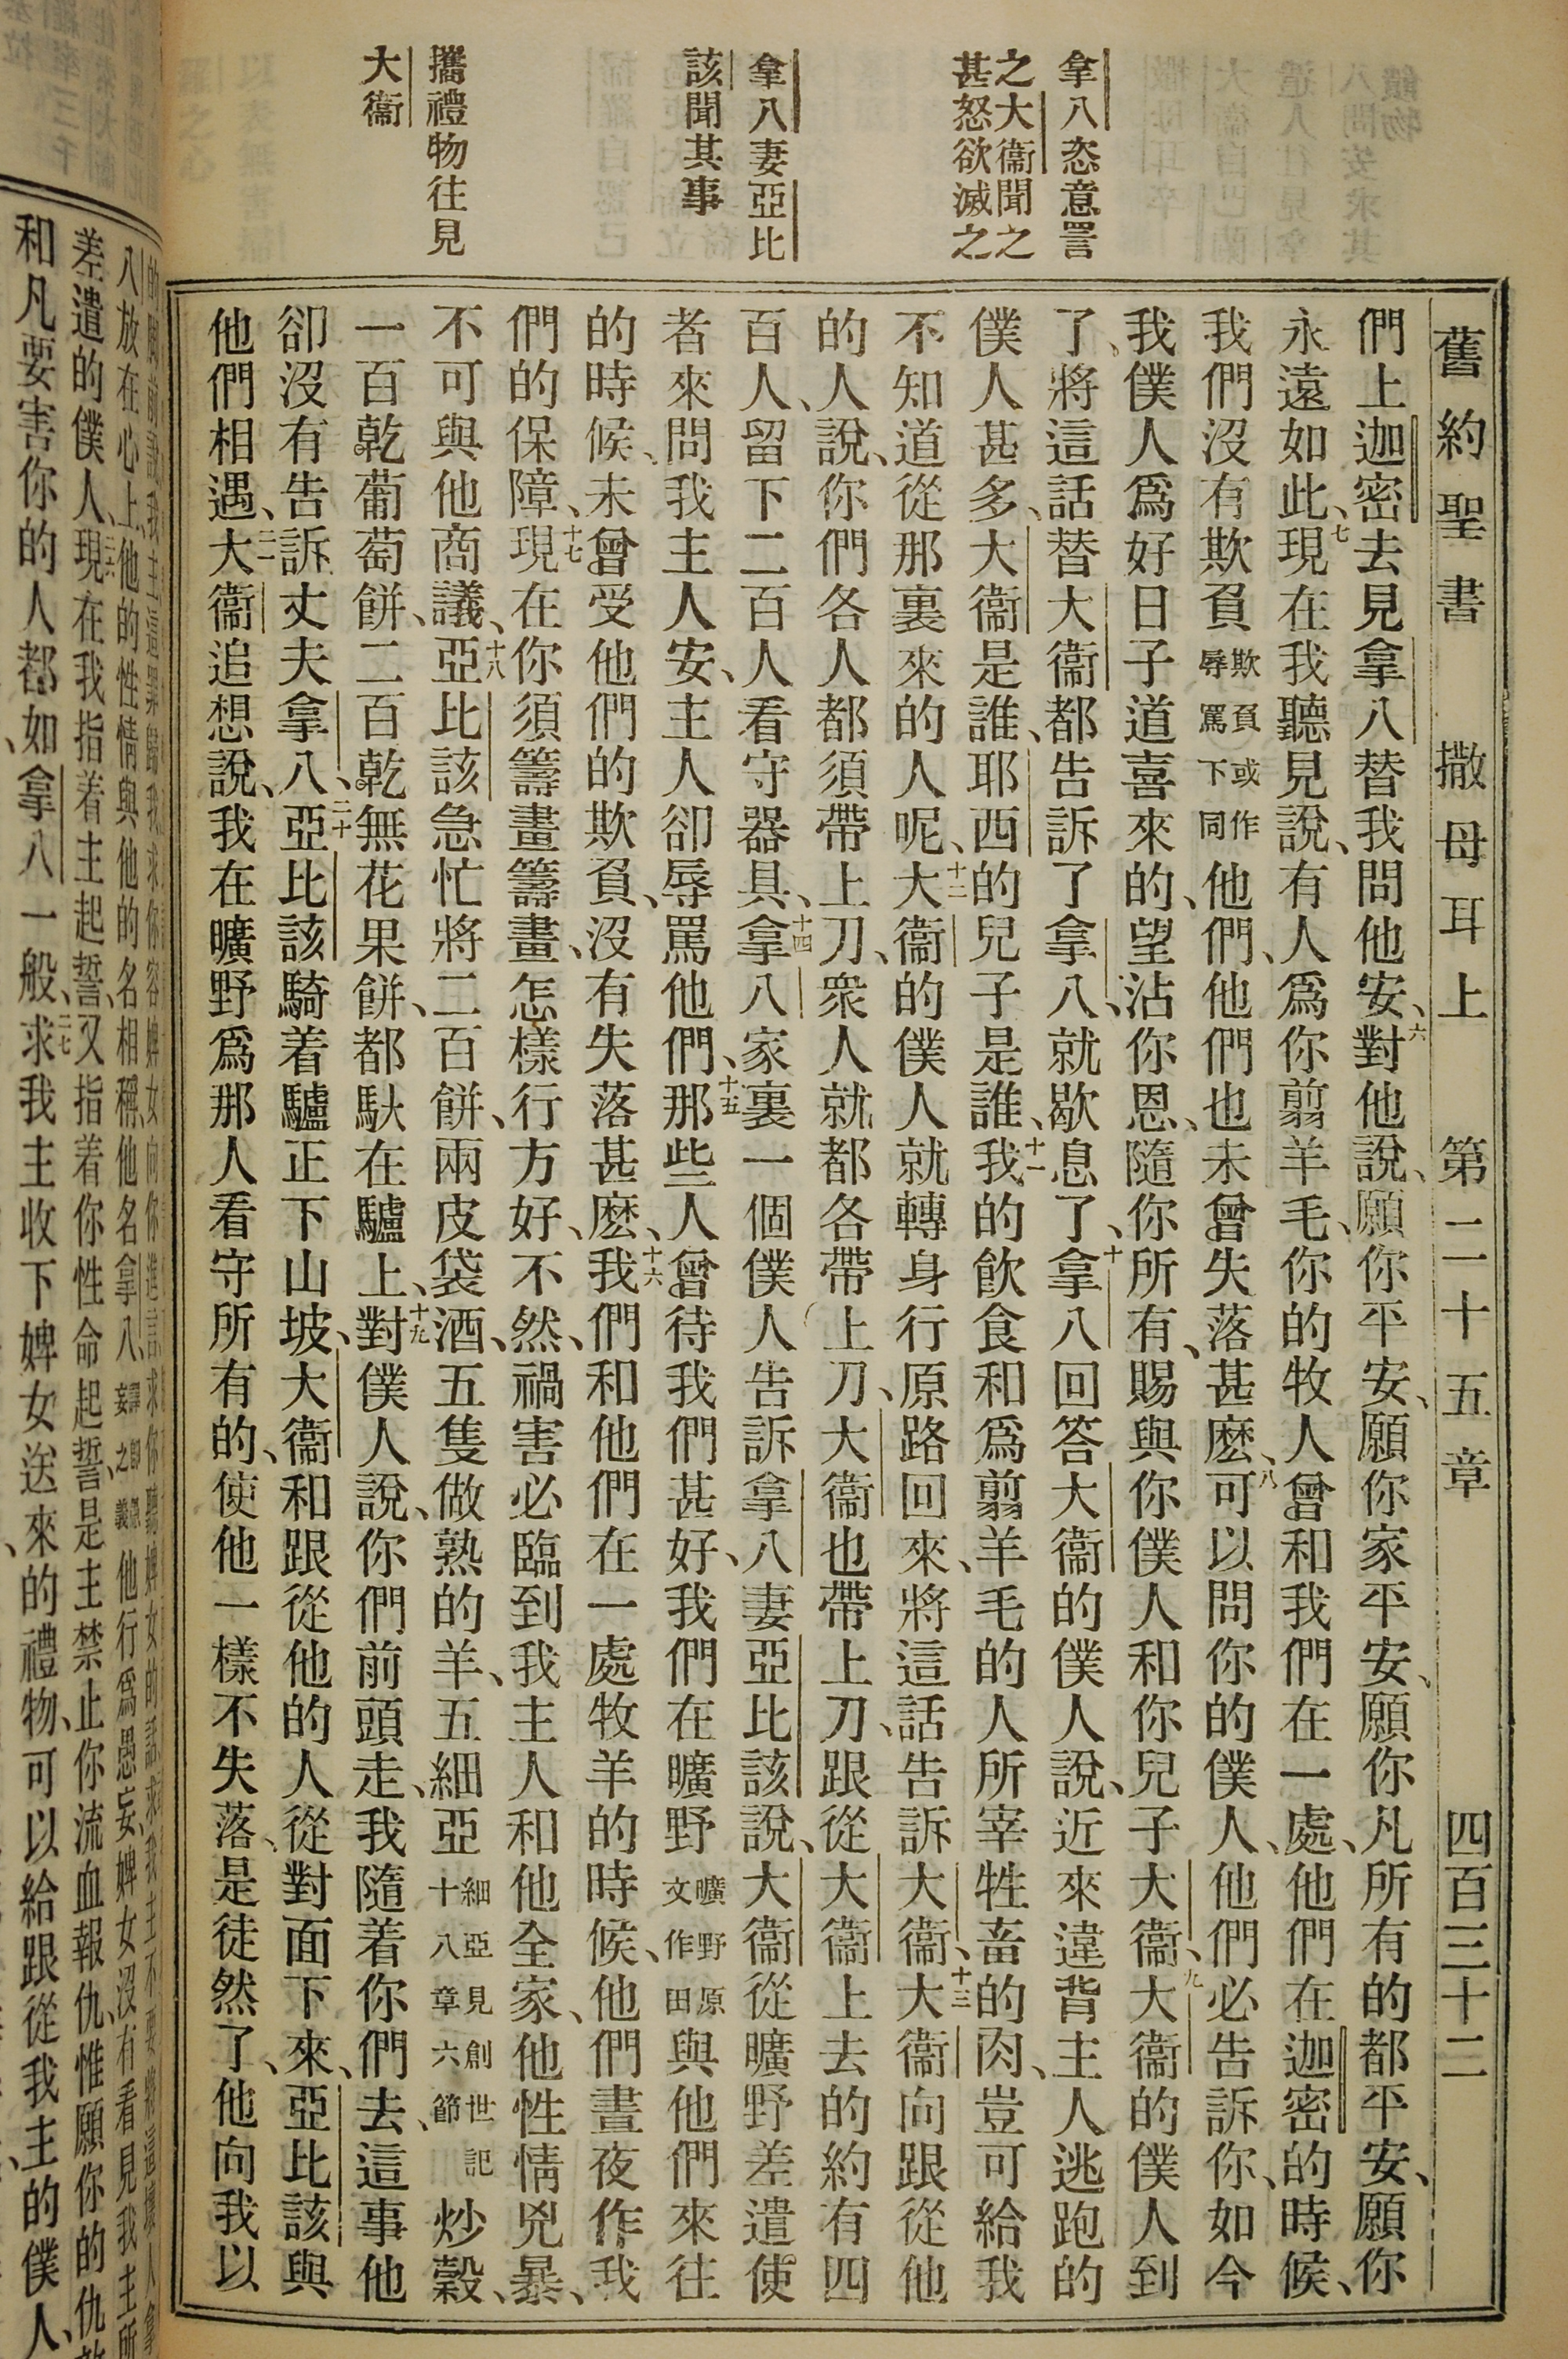 拿八恣意詈
之大衞聞之
甚怒欲滅之
拿八妻亞比
該聞其事
攜禮物往見
大衞
舊約聖書 撒母耳上 第二十五章 四百三十二
們上迦密去見拿八替我問他安、六對他說、願你平安、願你家平安、願你凡所有的都平安、願你
永遠如此、七現在我聽見說、有人爲你翦羊毛、你的牧人曾和我們在一處、他們在迦密的時候、
我們沒有欺負欺負或作辱罵下同他們、他們也未曾失落甚麽、八可以問你的僕人、他們必告訴你、如今
我僕人爲好日子道喜來的、望沾你恩、隨你所有、賜與你僕人和你兒子大衞、九大衞的僕人到
了、將這話替大衞都告訴了拿八、就歇息了、十拿八回答大衞的僕人說、近來違背主人逃跑的
僕人甚多、大衞是誰、耶西的兒子是誰、十一我的飲食和爲翦羊毛的人所宰牲畜的肉、豈可給我
不知道從那裏來的人呢、十二大衞的僕人就轉身行原路回來、將這話告訴大衞、十三大衞向跟從他
的人說、你們各人都須帶上刀、衆人就都各帶上刀、大衞也帶上刀、跟從大衞上去的約有四
百人、留下二百人看守器具、十四拿八家裏一個僕人告訴拿八妻亞比該說、大衞從曠野差遣使
者來問我主人安、主人卻辱罵他們、十五那些人曾待我們甚好、我們在曠野曠野原文作田與他們來往
的時候、未曾受他們的欺負、沒有失落甚麽、十六我們和他們在一處牧羊的時候、他們晝夜作我
們的保障、十七現在你須籌畫籌畫、怎樣行方好、不然、禍害必臨到我主人和他全家、他性情兇暴、
不可與他商議、十八亞比該急忙將二百餅、兩皮袋酒、五隻做熟的羊、五細亞細亞見創世記十八章六節炒穀、
一百乾葡萄餅、二百乾無花果餅、都馱在驢上、十九對僕人說、你們前頭走、我隨着你們去、這事他
卻沒有告訴丈夫拿八、二十亞比該騎着驢正下山坡、大衞和跟從他的人從對面下來、亞比該與
他們相遇、二一大衞追想說、我在曠野爲那人看守所有的、使他一樣不失落、是徒然了、他向我以
八放在心上、他的性情與他的名相稱、他名拿八、他行爲愚妄、婢女沒有看見我主所
差遣的僕人、二六現在我指着主起誓、又指着你性命起誓、是主禁止你流血報仇、惟願你的仇
和凡要害你的人都如拿八一般、二七求我主收下婢女送來的禮物、可以給跟從我主的僕人、